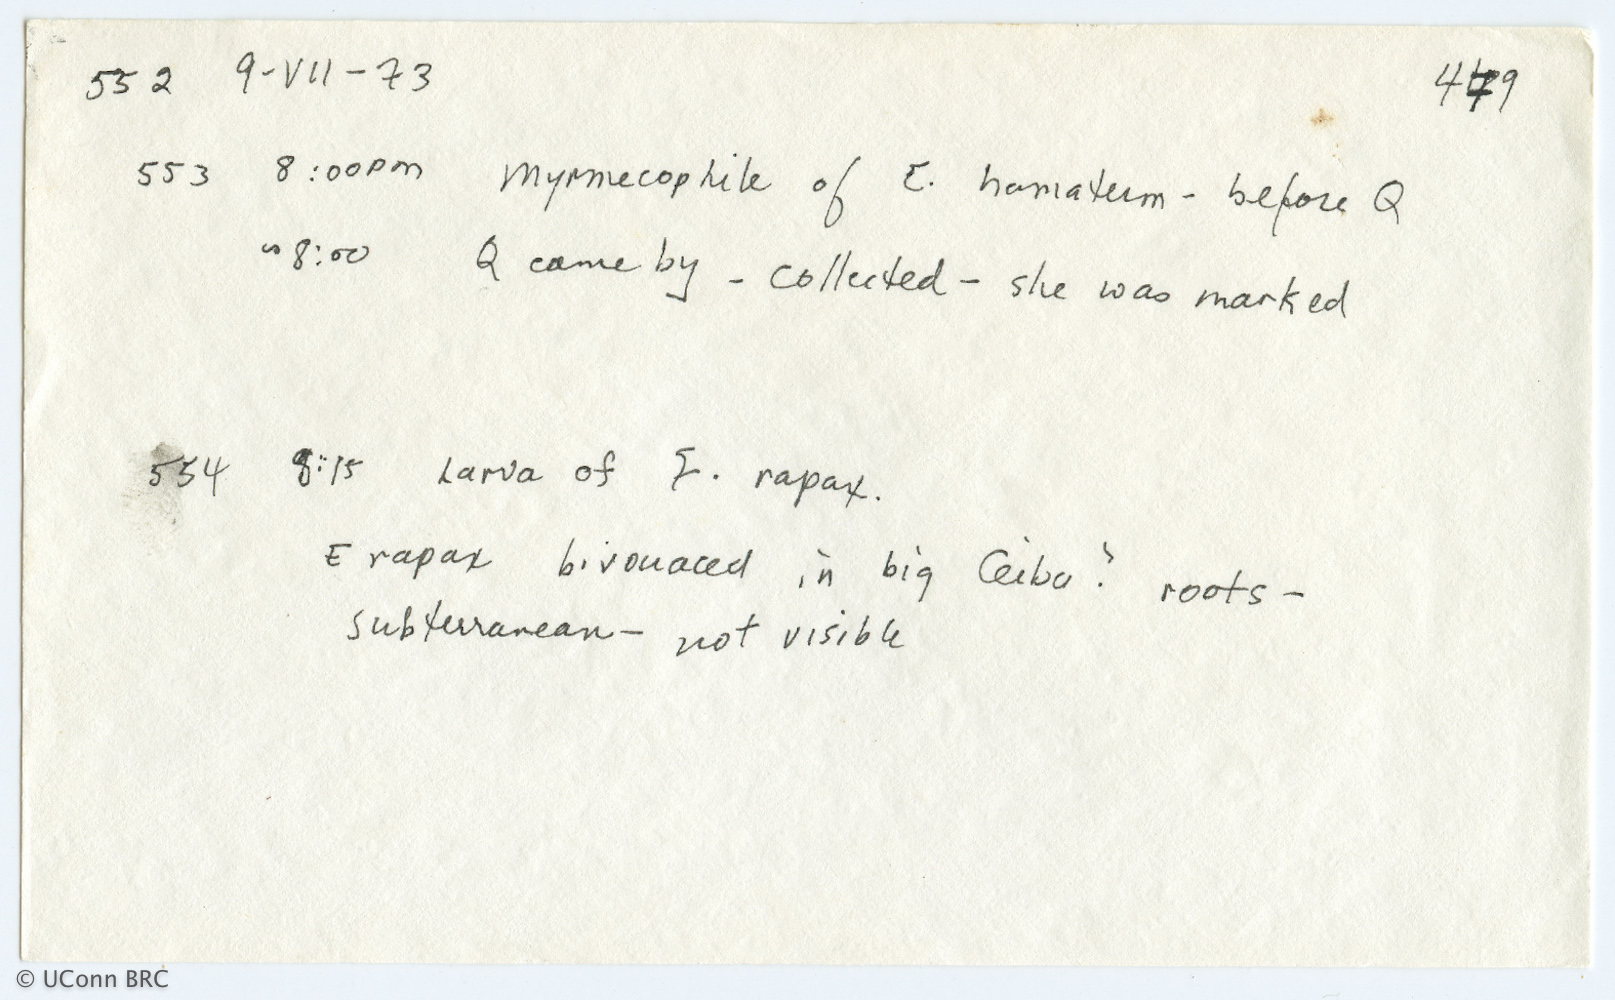 552 9-VII-73 479
553 8:00pm Myrmecophile of E. hamatum - before Q
~8:00 Q came by - collected - she was marked
554 8:15 Larva of E. rapax.
E rapax bivouaced in big Ceiba? roots -
subterranean - not visible
© UConn BRC